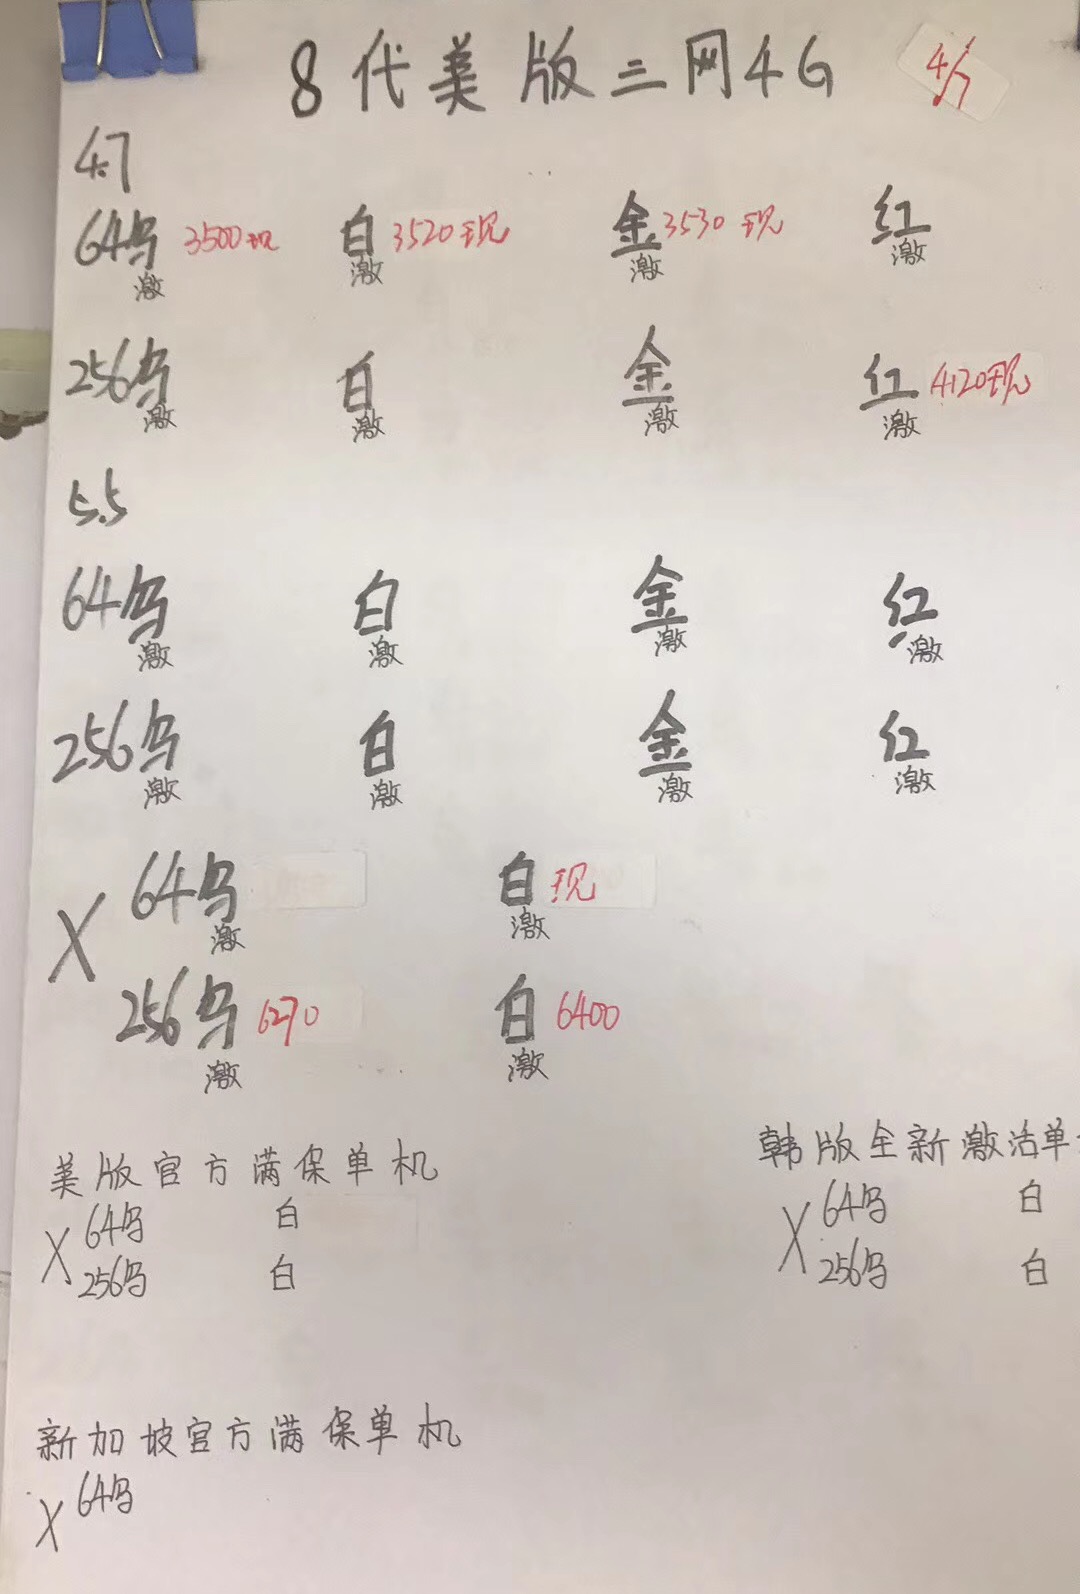 8代美版三网4G 4/7
4.7
64乌 3500现 白 3520现 金 3530现 红
激 激 激 激
256乌 白 金 红 4120现
激 激 激 激
5.5
64乌 白 金 红
激 激 激 激
256乌 白 金 红
激 激 激 激
X 64乌 白 现
激 激
256乌 6270 白 6400
激 激
美版官方满保单机
X 64乌 白
256乌 白
韩版全新激活单
X 64乌 白
256乌 白
新加坡官方满保单机
X 64乌